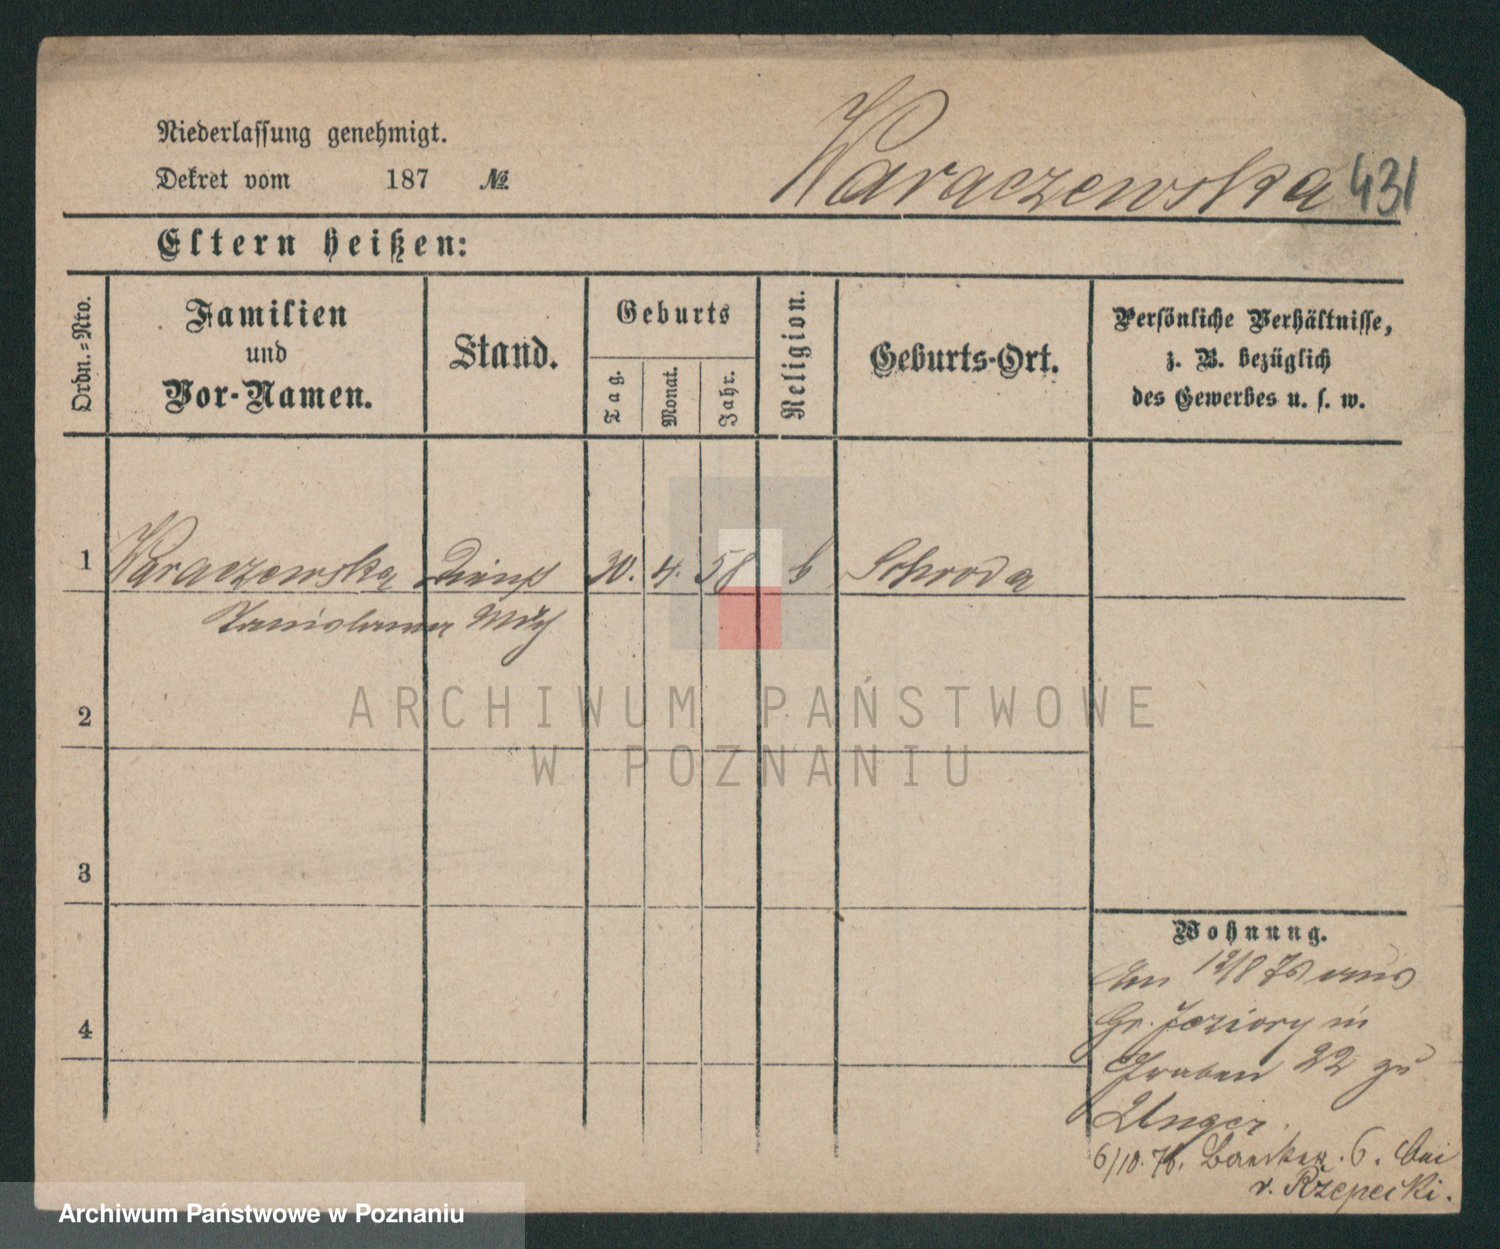 Niederlassung genehmigt.
Dekret vom 187 №
Waraczewska 431
Eltern heißen:
Ordn.=Nro.
Familien
und
Vor-Namen.
Stand.
Geburts
Tag.
Monat.
Jahr.
Religion.
Geburts-Ort.
Persönliche Verhältnisse,
z. B. bezüglich
des Gewerbes u. s. w.
1 Waraczewska Dienst 30. 4. 58 k Schroda
Stanislawa
2
3
4
ARCHIWUM PAŃSTWOWE
W POZNANIU
Wohnung.
Am 12/8 76 aus
Gr. Jeziory in
Graben 22 zu
Unger.
6/10.76. 6. bei
v. Rzepecki.
Archiwum Państwowe w Poznaniu